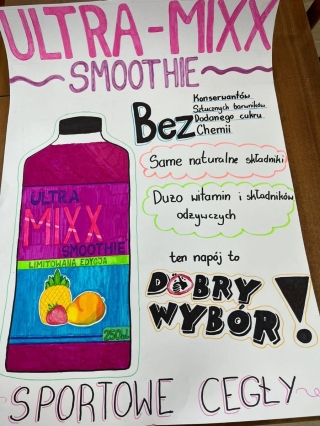 ULTRA-MIXX
SMOOTHIE
Bez
Konserwantów
Sztucznych barwników
Dodanego cukru
Chemii
Same naturalne składniki
Dużo witamin i składników
odżywczych
ten napój to
DOBRY
WYBÓR!
ULTRA
MIXX
SMOOTHIE
LIMITOWANA EDYCJA
250ml
SPORTOWE CEGŁY